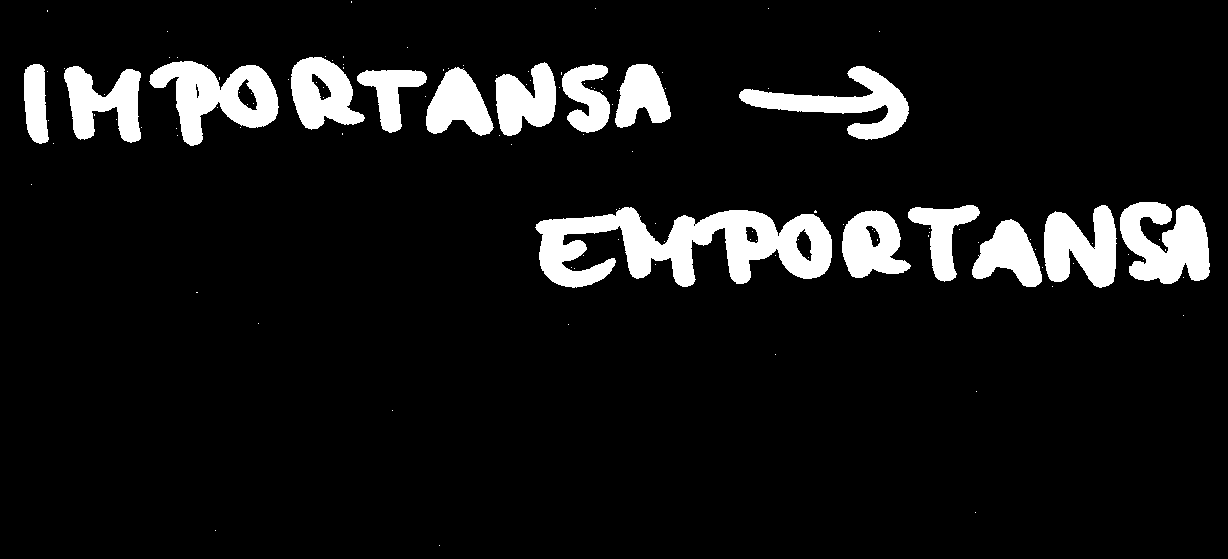 IMPORTANSA →
EMPORTANSA